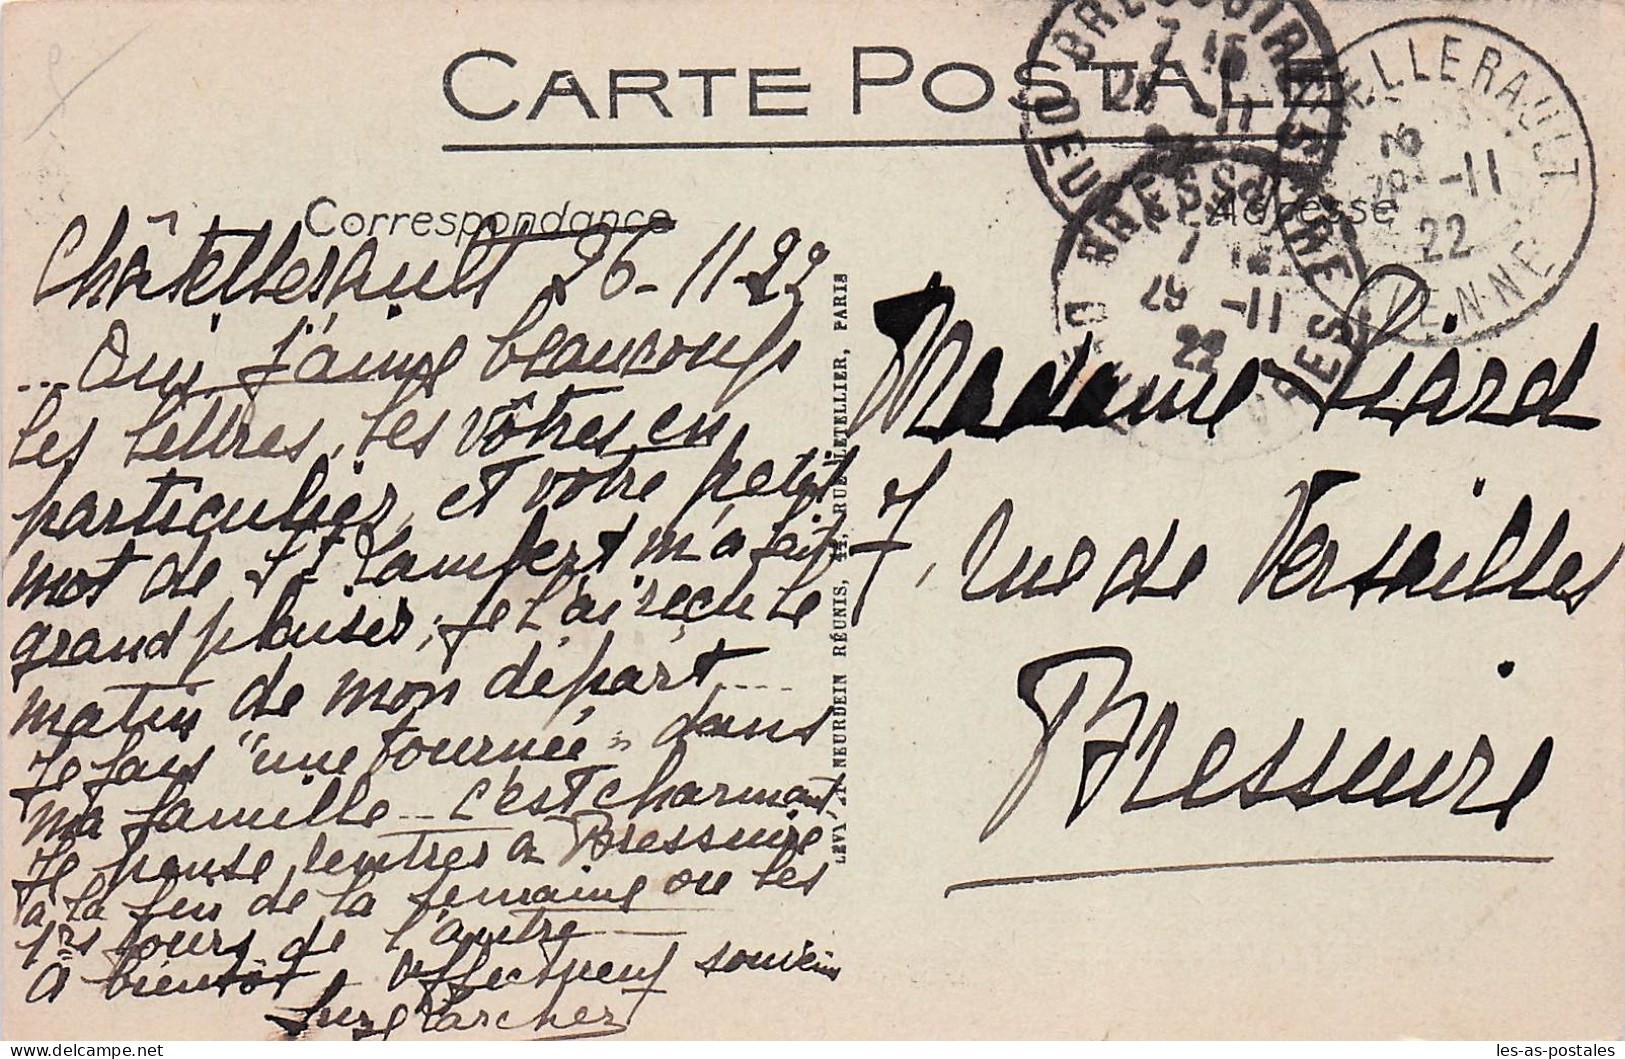 CARTE POSTALE
Correspondance
Adresse
Châtellerault 26-11-22
... Oui, j'aime beaucoup
les lettres, les vôtres en
particulier, et votre petit
mot de St Lambert m'a fait
grand plaisir; je l'ai reçu le
matin de mon départ....
Je fais "une tournée" dans
ma famille... c'est charmant
Je pense rentrer à Bressuire
à la fin de la semaine ou les
1ers jours de l'autre
à bientôt affectueux souvenir
LEVY ET NEURDEIN RÉUNIS, 44, RUE LETELLIER, PARIS
Madame Liard
7, rue de Versailles
Bressuire
BRESSUIRE
DEUX SÈVRES
7 15
26 -11
22
BRESSUIRE
DEUX SÈVRES
7 15
29 -11
22
CHATELLERAULT
VIENNE
26 -11
22
les-as-postales
delcampe.net